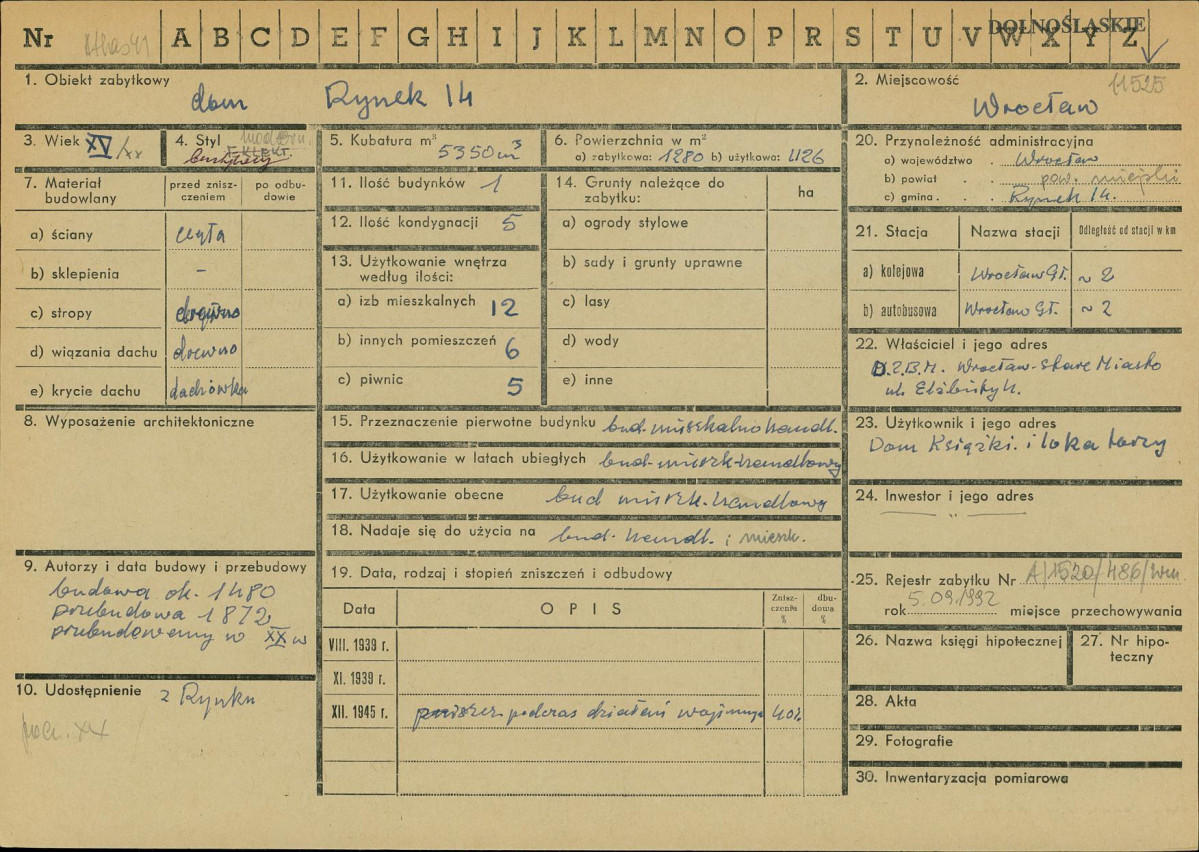 Nr A B C D E F G H I J K L M N O P R S T U V W X Y Z
DOLNOŚLĄSKIE
1. Obiekt zabytkowy
dom Rynek 14
2. Miejscowość
11525
Wrocław
3. Wiek XV/xx
4. Styl
EKLEKT.
5. Kubatura m³ 5350 m³
6. Powierzchnia w m²
a) zabytkowa: 1280 b) użytkowa: 1126
7. Materiał budowlany
przed zniszczeniem
po odbudowie
a) ściany cegła
b) sklepienia –
c) stropy drewno
d) wiązania dachu drewno
e) krycie dachu dachówka
8. Wyposażenie architektoniczne
9. Autorzy i data budowy i przebudowy
budowa ok. 1480
przebudowa 1872
przebudowany w XX w
10. Udostępnienie z Rynku
11. Ilość budynków 1
12. Ilość kondygnacji 5
13. Użytkowanie wnętrza
według ilości:
a) izb mieszkalnych 12
b) innych pomieszczeń 6
c) piwnic 5
14. Grunty należące do
zabytku:
ha
a) ogrody stylowe
b) sady i grunty uprawne
c) lasy
d) wody
e) inne
15. Przeznaczenie pierwotne budynku bud. mieszkalno handl.
16. Użytkowanie w latach ubiegłych bud. mieszk-handlowy
17. Użytkowanie obecne bud mieszk. handlowy
18. Nadaje się do użycia na bud. handl. i mieszk.
19. Data, rodzaj i stopień zniszczeń i odbudowy
Data OPIS Zniszczenia % dbudowa %
VIII. 1939 r.
XI. 1939 r.
XII. 1945 r. podczas działań wojennych 40%
20. Przynoleżność administracyjna
a) województwo Wrocław
b) powiat pow. miejski
c) gmina Rynek 14.
21. Stacja
Nazwa stacji
Odległość od stacji w km
a) kolejowa Wrocław Gł. ~ 2
b) autobusowa Wrocław Gł. ~ 2
22. Właściciel i jego adres
D.Z.B.M. Wrocław-Stare Miasto
ul.
23. Użytkownik i jego adres
Dom Książki. i lokatorzy
24. Inwestor i jego adres
— " —
25. Rejestr zabytku Nr A/1520/486/Wm
rok 5.09.1992 miejsce przechowywania
26. Nazwa księgi hipotecznej
27. Nr hipoteczny
28. Akta
29. Fotografie
30. Inwentaryzacja pomiarowa